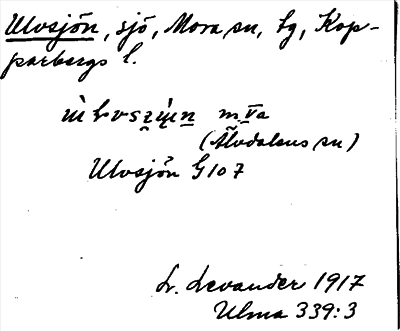 Ulvsjön, sjö, Mora sn, bg, Kop-
parbergs l.
m. Va
(Älvdalens sn)
Ulvsjön G107
L. Levander 1917
Ulma 339:3